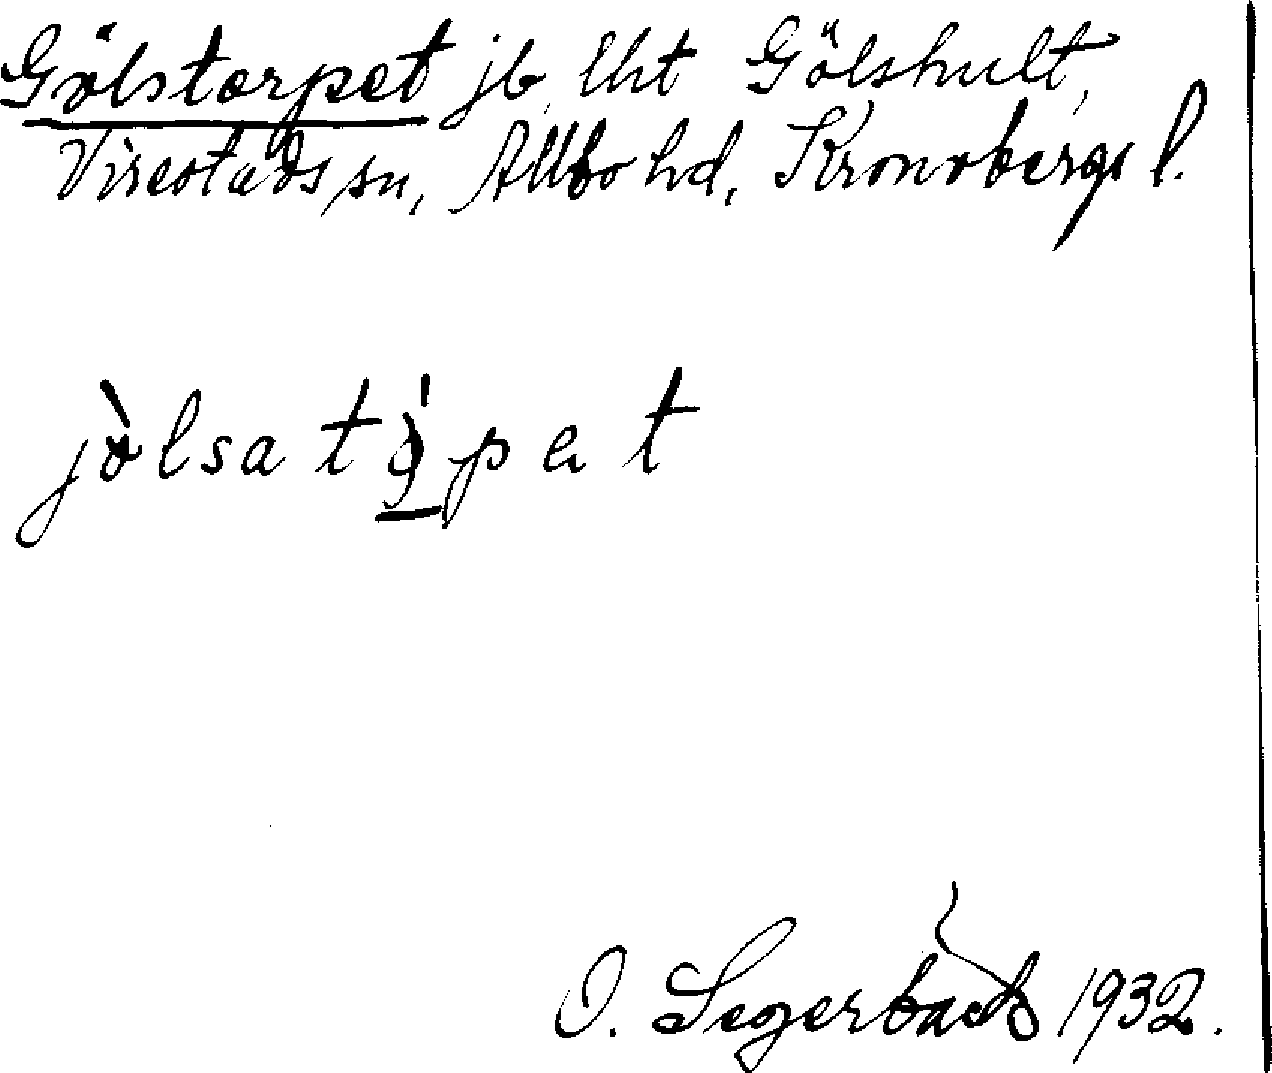 Gölstorpet jb, lht Gölshult,
Virestads sn, Allbo hd, Kronobergs l.
jølsatǫ̀pet
O. Segerbäck 1932.